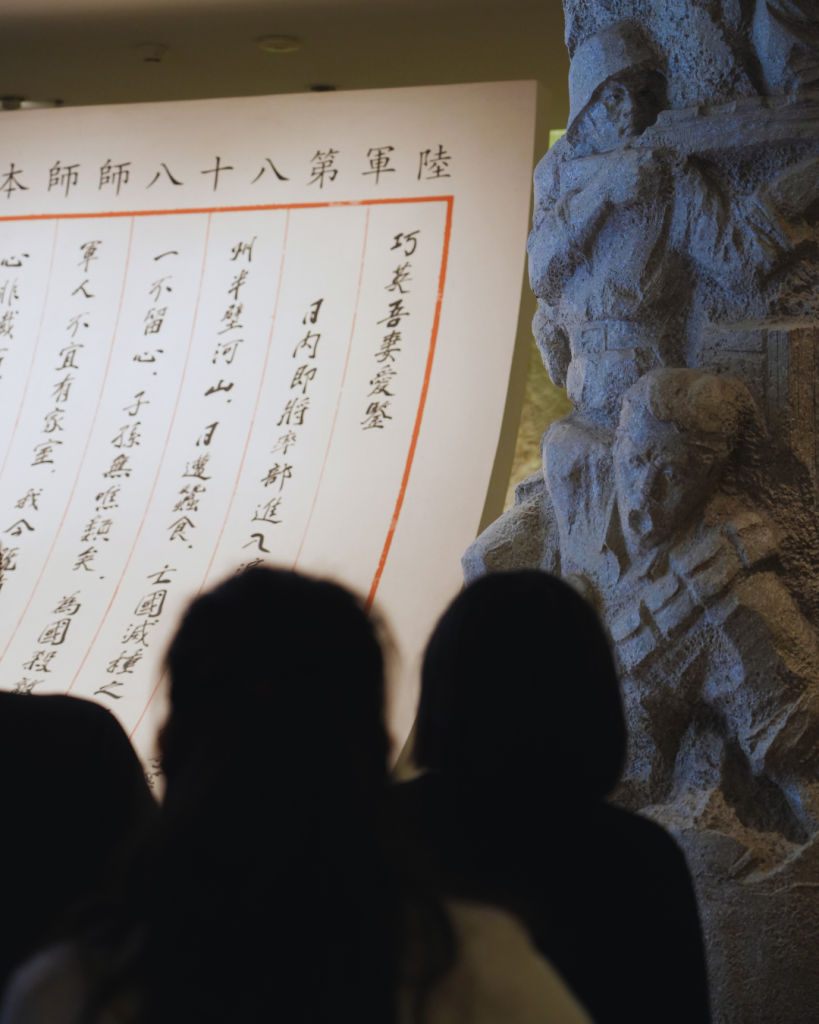 陸軍第八十八師師本
巧英吾妻愛鑒
日内即將率部進入
州半壁河山，日遭蠶食，亡國滅種之
一不留心，子孫無噍類矣，為國殺敵
軍人不宜有家室，我今既
心非戰